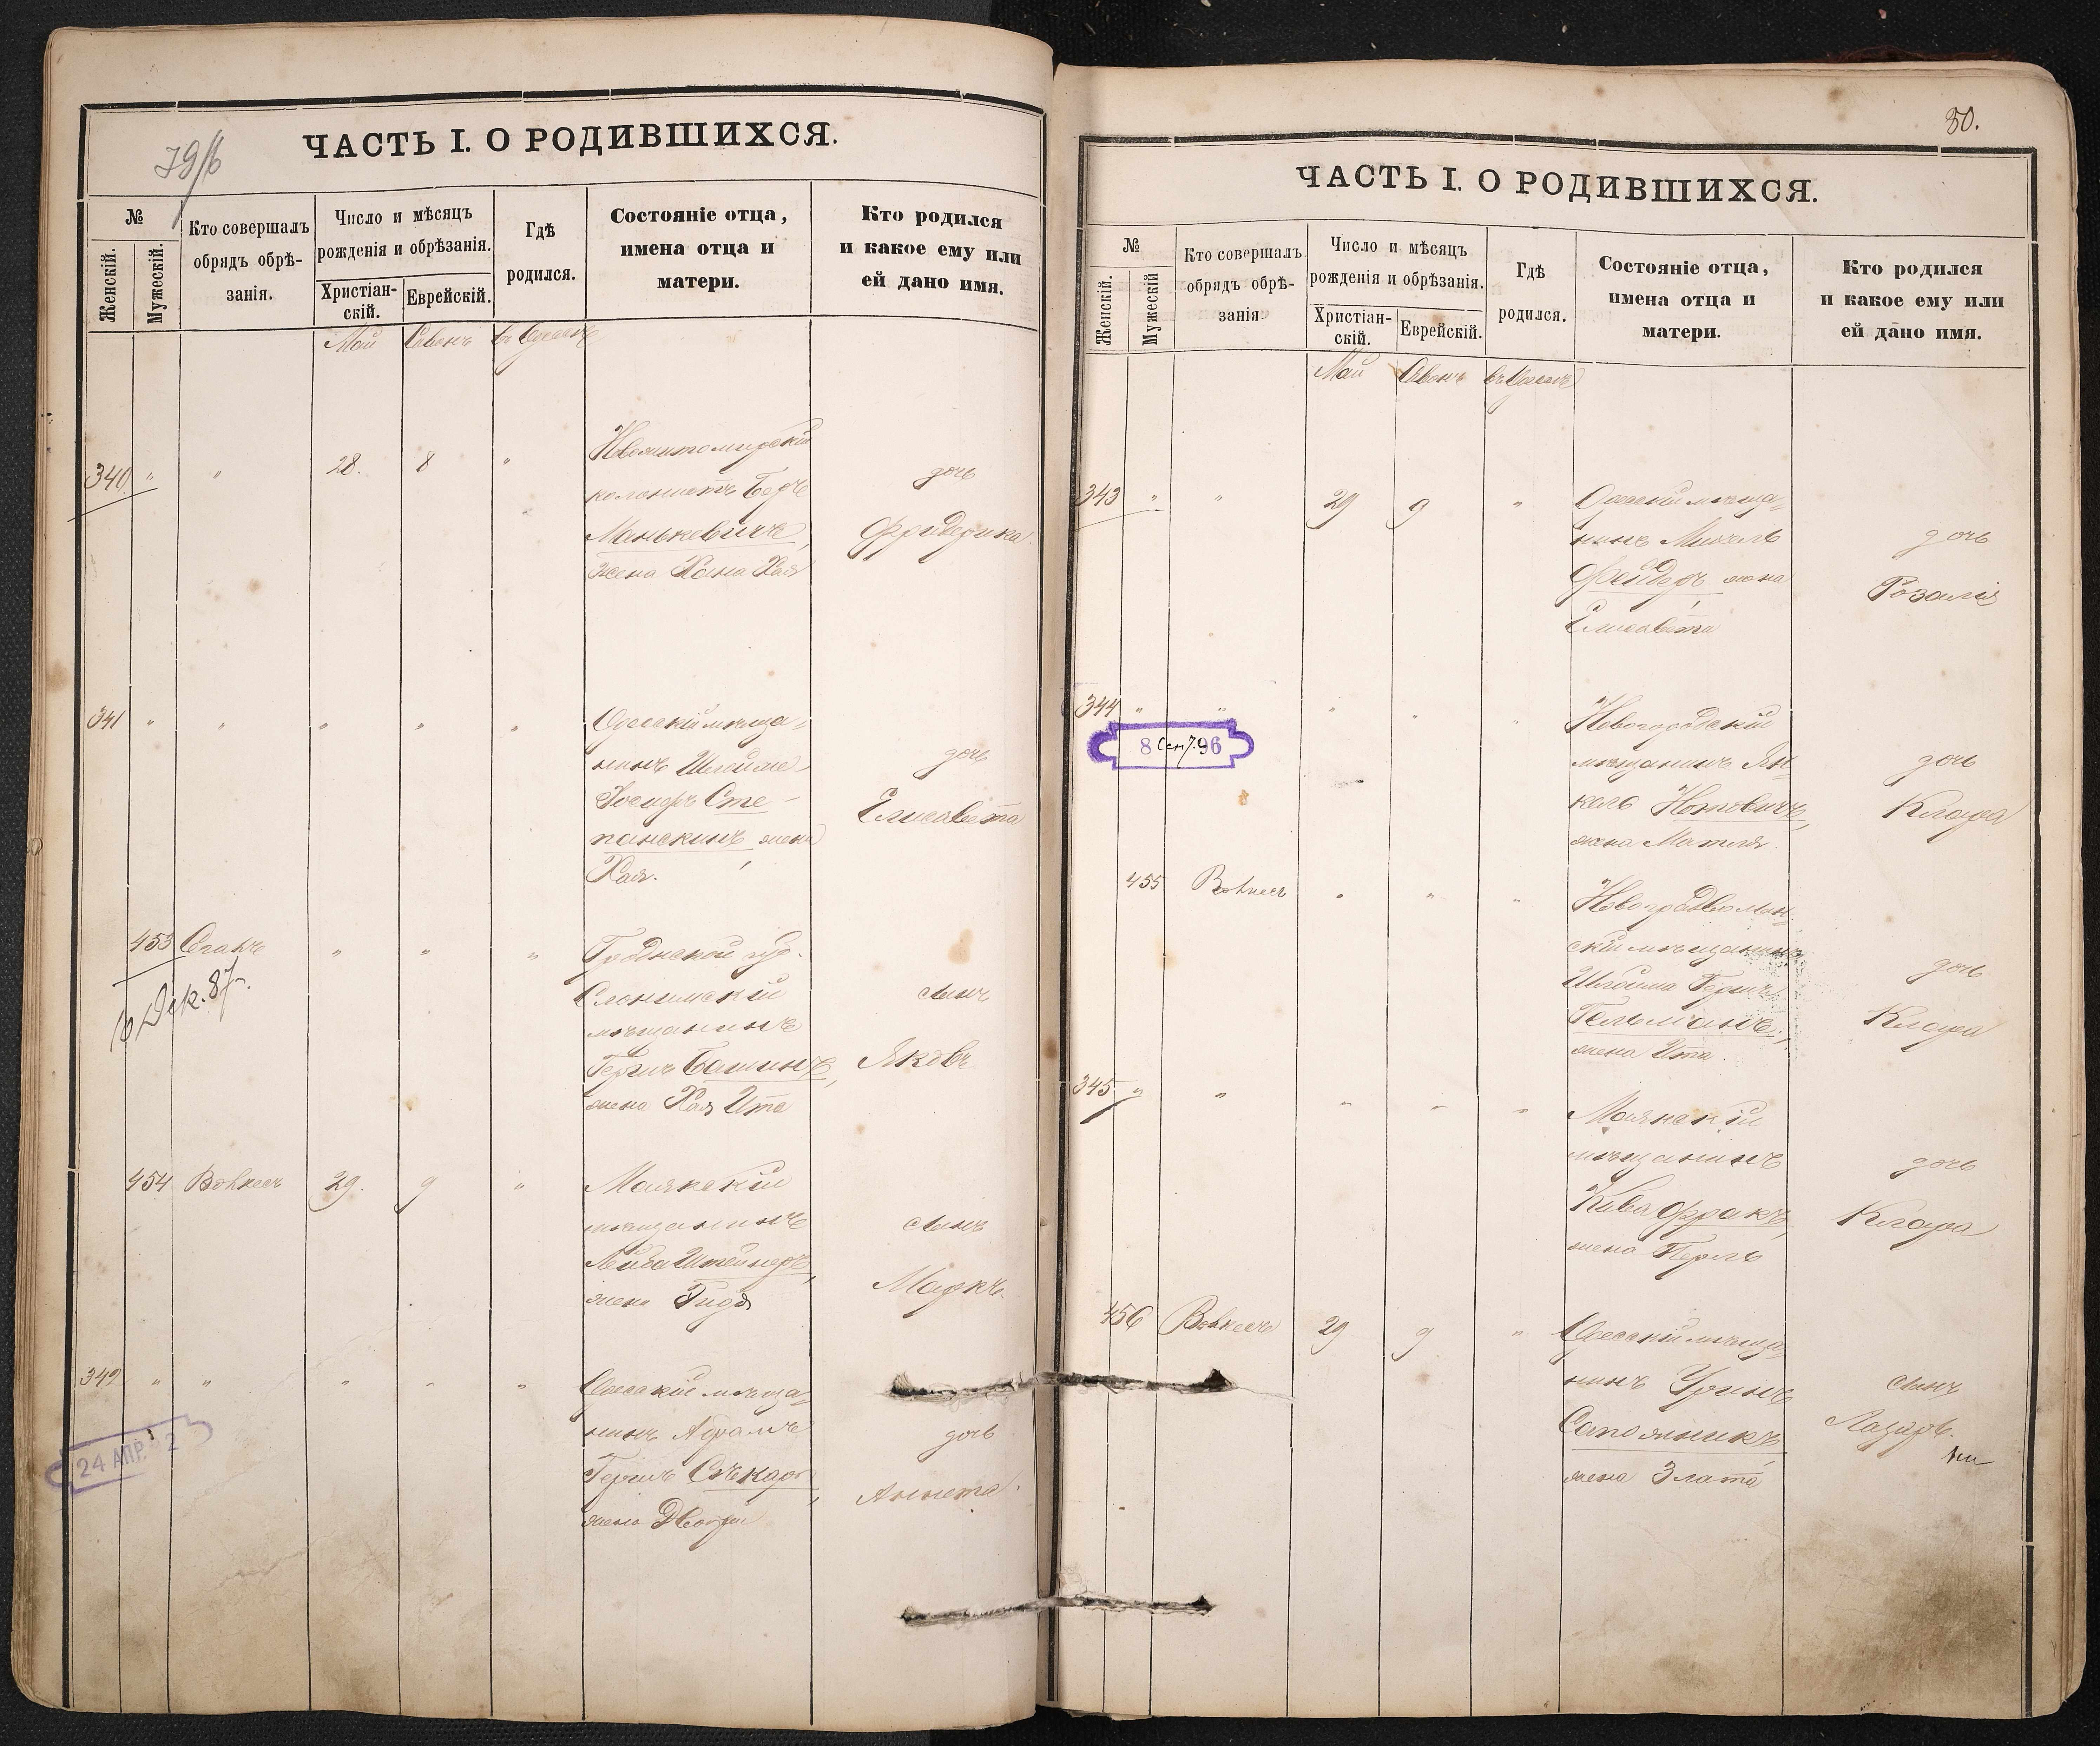 79/б
ЧАСТЬ I. О РОДИВШИХСЯ.
№
Женскій.
Мужескій.
Кто совершалъ
обрядъ обрѣ-
занія.
Число и мѣсяцъ
рожденія и обрѣзанія.
Христіан-
скій.
Еврейскій.
Гдѣ
родился.
Состояніе отца,
имена отца и
матери.
Кто родился
и какое ему или
ей дано имя.
Май Сивонъ въ Одессѣ
340 " " 28. 8 "
Новожитомирскій
колонистъ Беръ
Манькевичъ,
жена Хана Хая
дочь
Фридерика
341 " " " " "
Одесскій мѣща-
нинъ Шлойме
Іосифъ Сте-
панскинъ, жена
Хая.
дочь
Елисавета
453 " " "
Гродненской губ.
Слонимскій
мѣщанинъ
Гершъ Башинъ,
жена Хая Ита
сынъ
Яковъ
16 Дек. 87.
454 29. 9 "
Маякскій
мѣщанинъ
Лейба Штейнеръ,
жена
сынъ
Маркъ.
342 " " " " "
Одесскій мѣща-
нинъ Абрамъ
Гершъ
жена
дочь
Аннета.
24 АПР. 2
80.
ЧАСТЬ I. О РОДИВШИХСЯ.
№
Женскій.
Мужескій
Кто совершалъ
обрядъ обрѣ-
занія
Число и мѣсяцъ
рожденія и обрѣзанія.
Христіан-
скій.
Еврейскій.
Гдѣ
родился.
Состояніе отца,
имена отца и
матери.
Кто родился
и какое ему или
ей дано имя.
Май Сивонъ въ Одессѣ
343 " " 29 9 "
Одесскій мѣща-
нинъ Михель
Фейдеръ, жена
Елисавета
дочь
Розалія
344 " " " " "
8 Сен. 96
Новогородскій
мѣщанинъ Ян-
кель Нотовичъ,
жена Матля.
дочь
Клара
455 " " "
Новоградволын-
скій мѣщанинъ
Шлойма Гершъ
Гельманъ,
жена Ита.
дочь
Клара
345 " " " " "
Маякскій
мѣщанинъ
Кива Фракъ,
жена Перль
дочь
Клара
456 29 9 "
Одесскій мѣща-
нинъ Уринъ
Сапожникъ
жена Злата
сынъ
Лазарь.